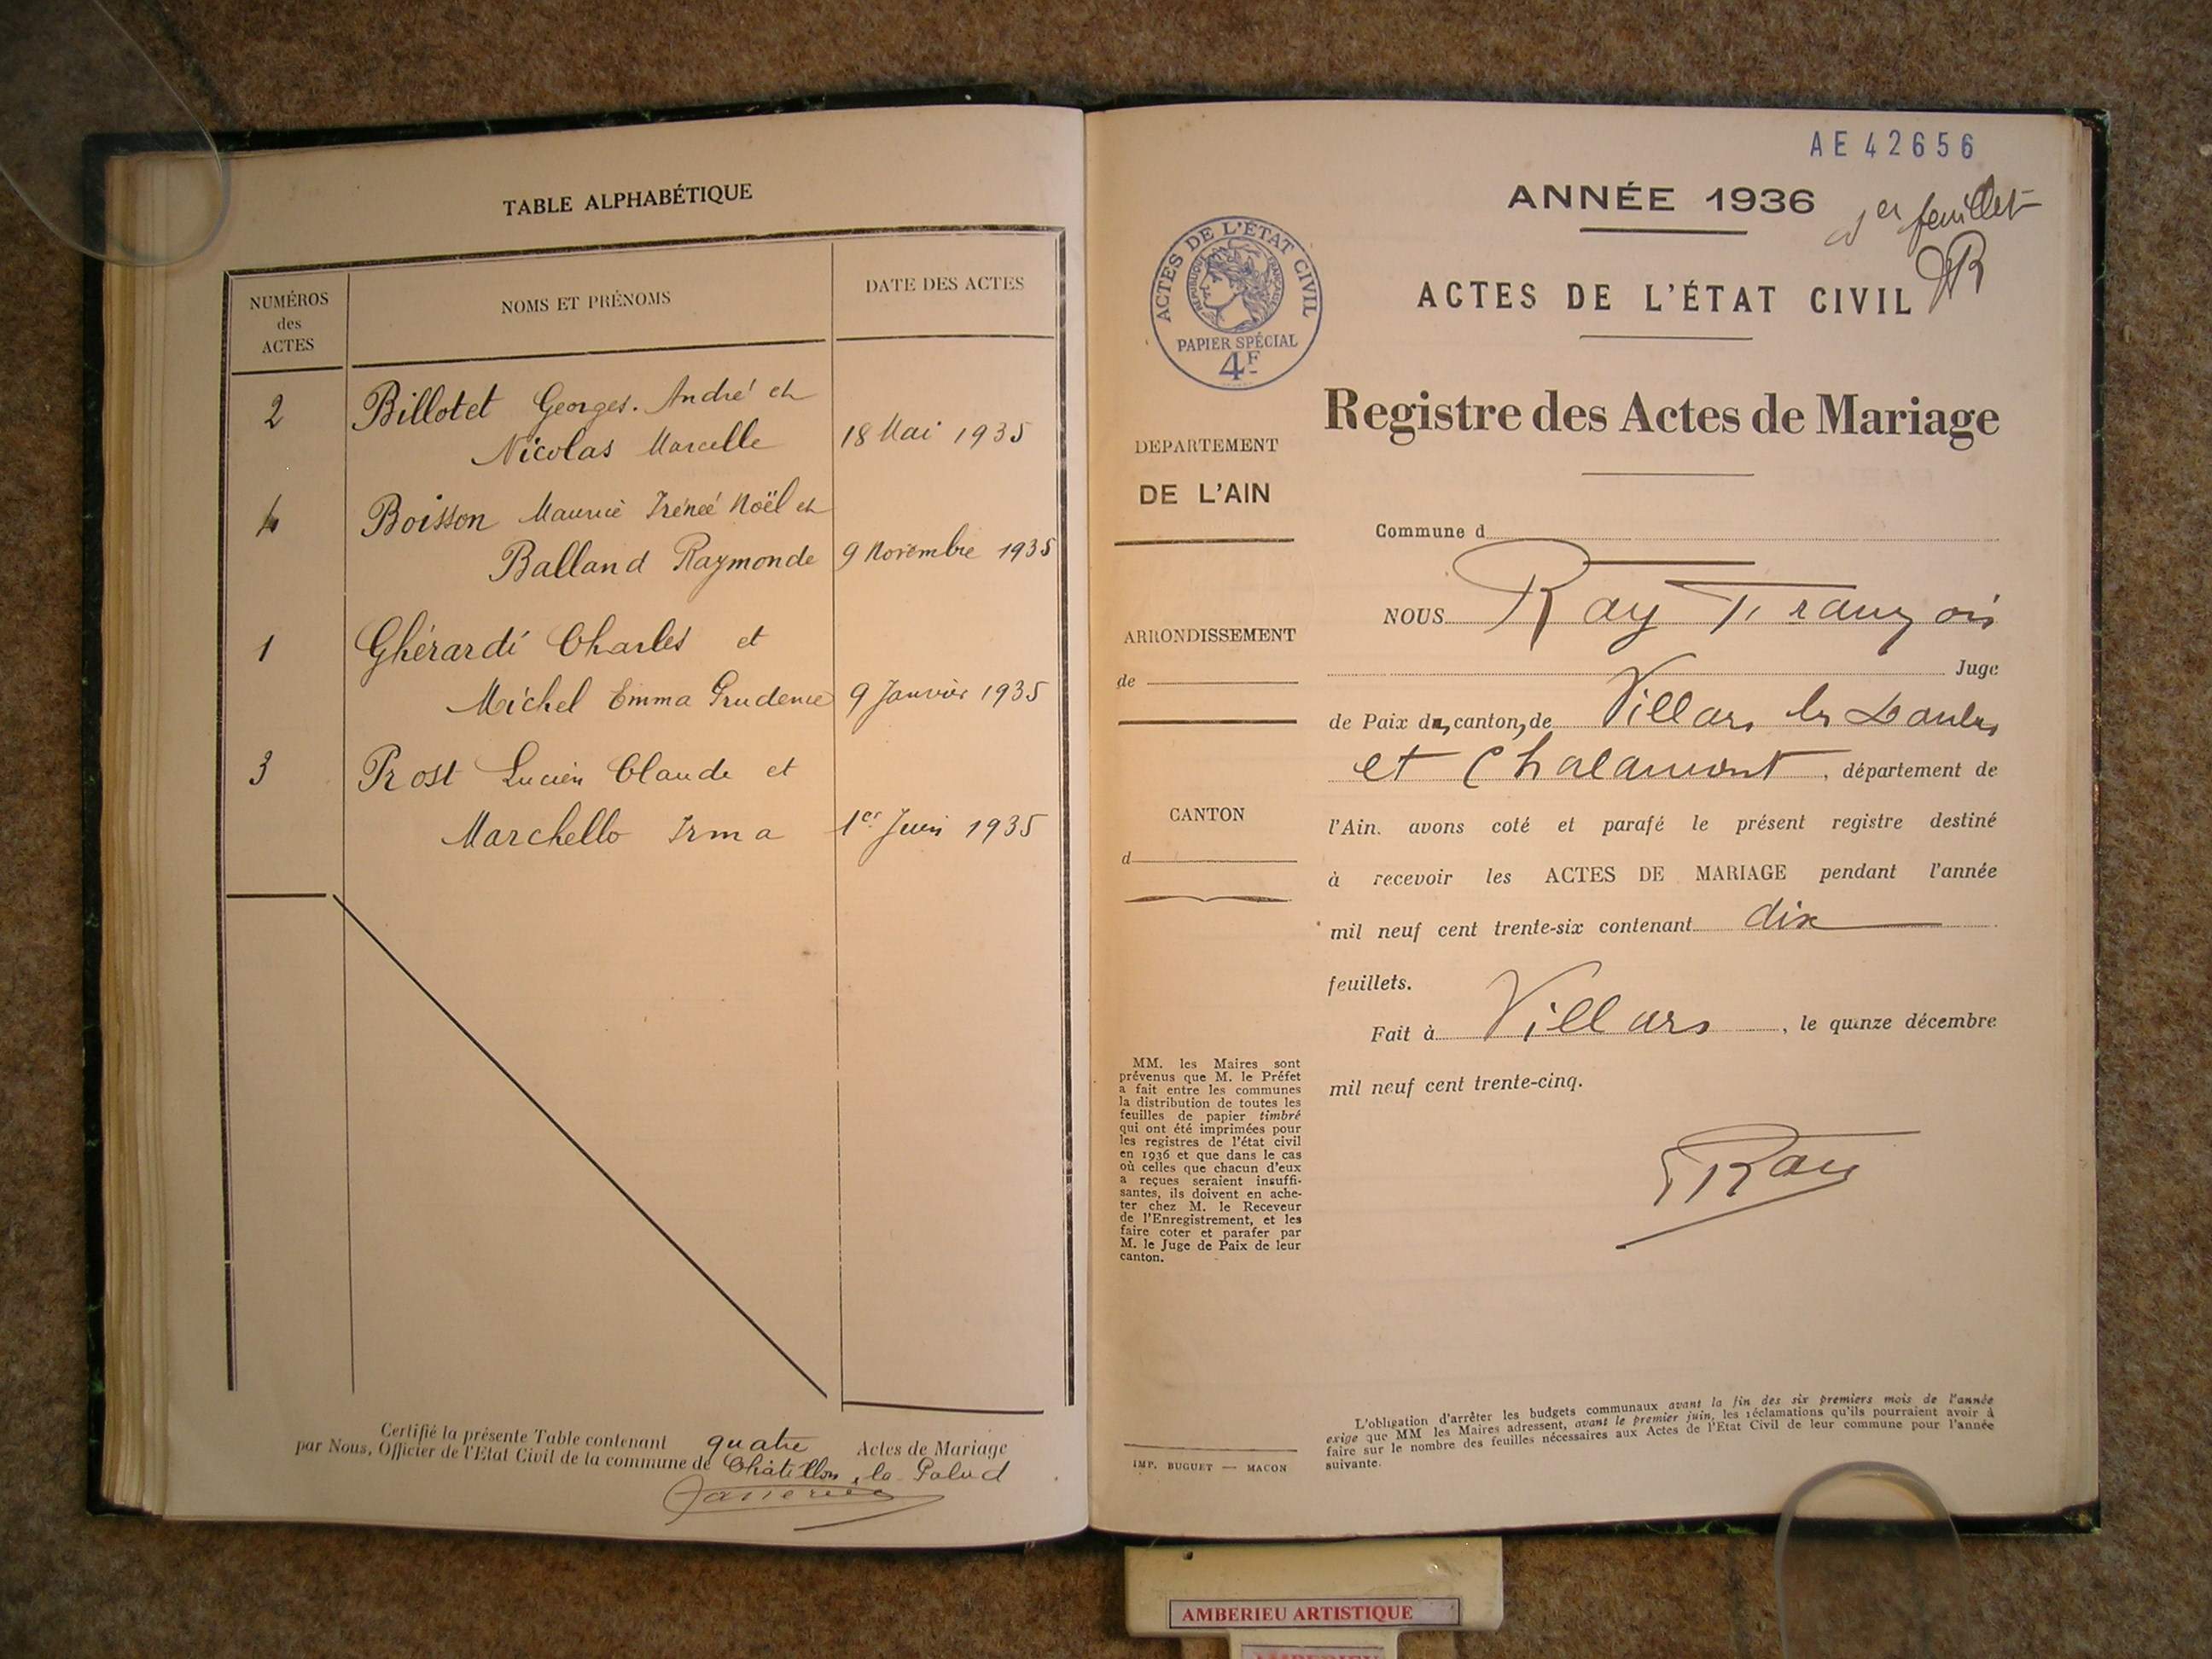 TABLE ALPHABÉTIQUE
NUMÉROS
des
ACTES
NOMS ET PRÉNOMS
DATE DES ACTES
2 Billotet Georges. André et
Nicolas Marcelle 18 Mai 1935
4 Boisson Maurice Irénée Noël et
Balland Raymonde 9 Novembre 1935
1 Ghérardi Charles et
Michel Emma Prudence 9 Janvier 1935
3 Prost Lucien Claude et
Marchello Irma 1er Juin 1935
Certifié la présente Table contenant quatre Actes de Mariage
par Nous, Officier de l'Etat Civil de la commune de Châtillon la Palud
AE42656
ANNÉE 1936
1er feuillet
ACTES DE L'ÉTAT CIVIL
RÉPUBLIQUE FRANÇAISE
PAPIER SPÉCIAL
4F
ACTES DE L'ÉTAT CIVIL
Registre des Actes de Mariage
DEPARTEMENT
DE L'AIN
ARRONDISSEMENT
de
CANTON
d
Commune d
NOUS Ray François
Juge
de Paix du canton, de Villars les Dombes
et Chalamont, département de
l'Ain. avons coté et parafé le présent registre destiné
à recevoir les ACTES DE MARIAGE pendant l'année
mil neuf cent trente-six contenant dix
feuillets.
Fait à Villars, le quinze décembre
mil neuf cent trente-cinq.
Ray
MM. les Maires sont
prévenus que M. le Préfet
a fait entre les communes
la distribution de toutes les
feuilles de papier timbré
qui ont été imprimées pour
les registres de l'état civil
en 1936 et que dans le cas
où celles que chacun d'eux
a reçues seraient insuffi-
santes, ils doivent en ache-
ter chez M. le Receveur
de l'Enregistrement, et les
faire coter et parafer par
M. le Juge de Paix de leur
canton.
IMP. BUGUET — MACON
L'obligation d'arrêter les budgets communaux avant la fin des six premiers mois de l'année
exige que MM les Maires adressent, avant le premier juin, les réclamations qu'ils pourraient avoir à
faire sur le nombre des feuilles nécessaires aux Actes de l'Etat Civil de leur commune pour l'année
suivante.
AMBERIEU ARTISTIQUE
AMBERIEU